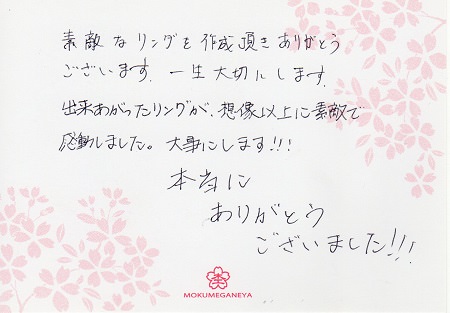 素敵なリングを作成頂きありがとう
ございます。一生大切にします。
出来あがったリングが、想像以上に素敵で
感動しました。大事にします!!!
本当に
ありがとう
ございました!!!
MOKUMEGANEYA